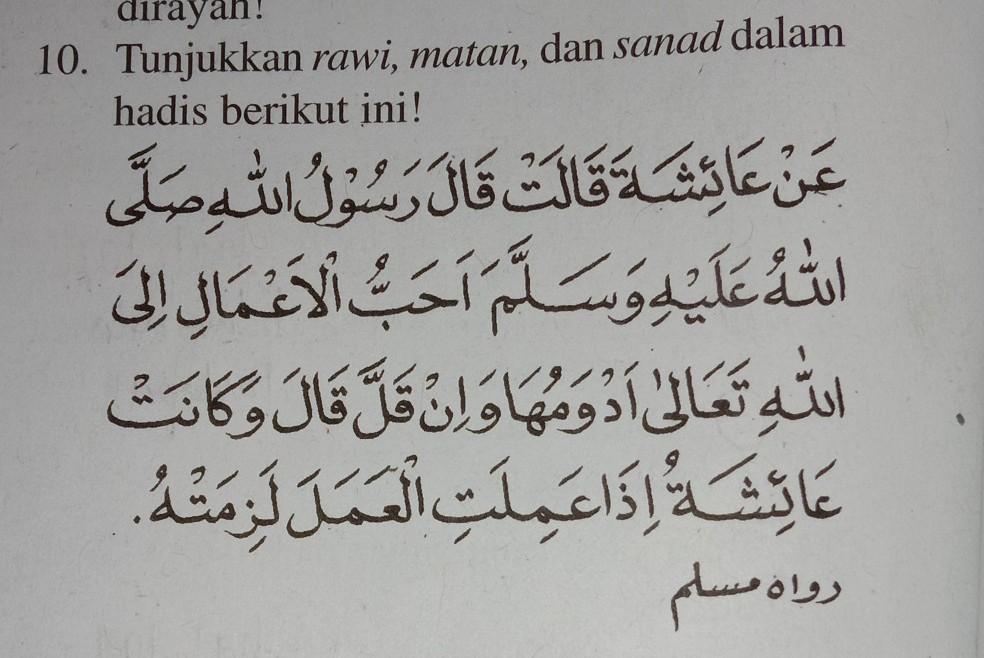 dirayah!
10. Tunjukkan rawi, matan, dan sanad dalam
hadis berikut ini!
عَنْ عَائِشَةَ قَالَتْ قَالَ رَسُوْلُ اللّٰهِ صَلَّى
اللّٰهُ عَلَيْهِ وَسَلَّمَ اَحَبُّ الْاَعْمَالِ اِلىَ
اللّٰهِ تَعَالىٰ اَدْوَمُهَا وَاِنْ قَلَّ قَالَ وَكَانَتْ
عَائِشَةُ اِذَا عَمِلَتِ الْعَمَلَ لَزِمَتْهُ.
رواه مسلم